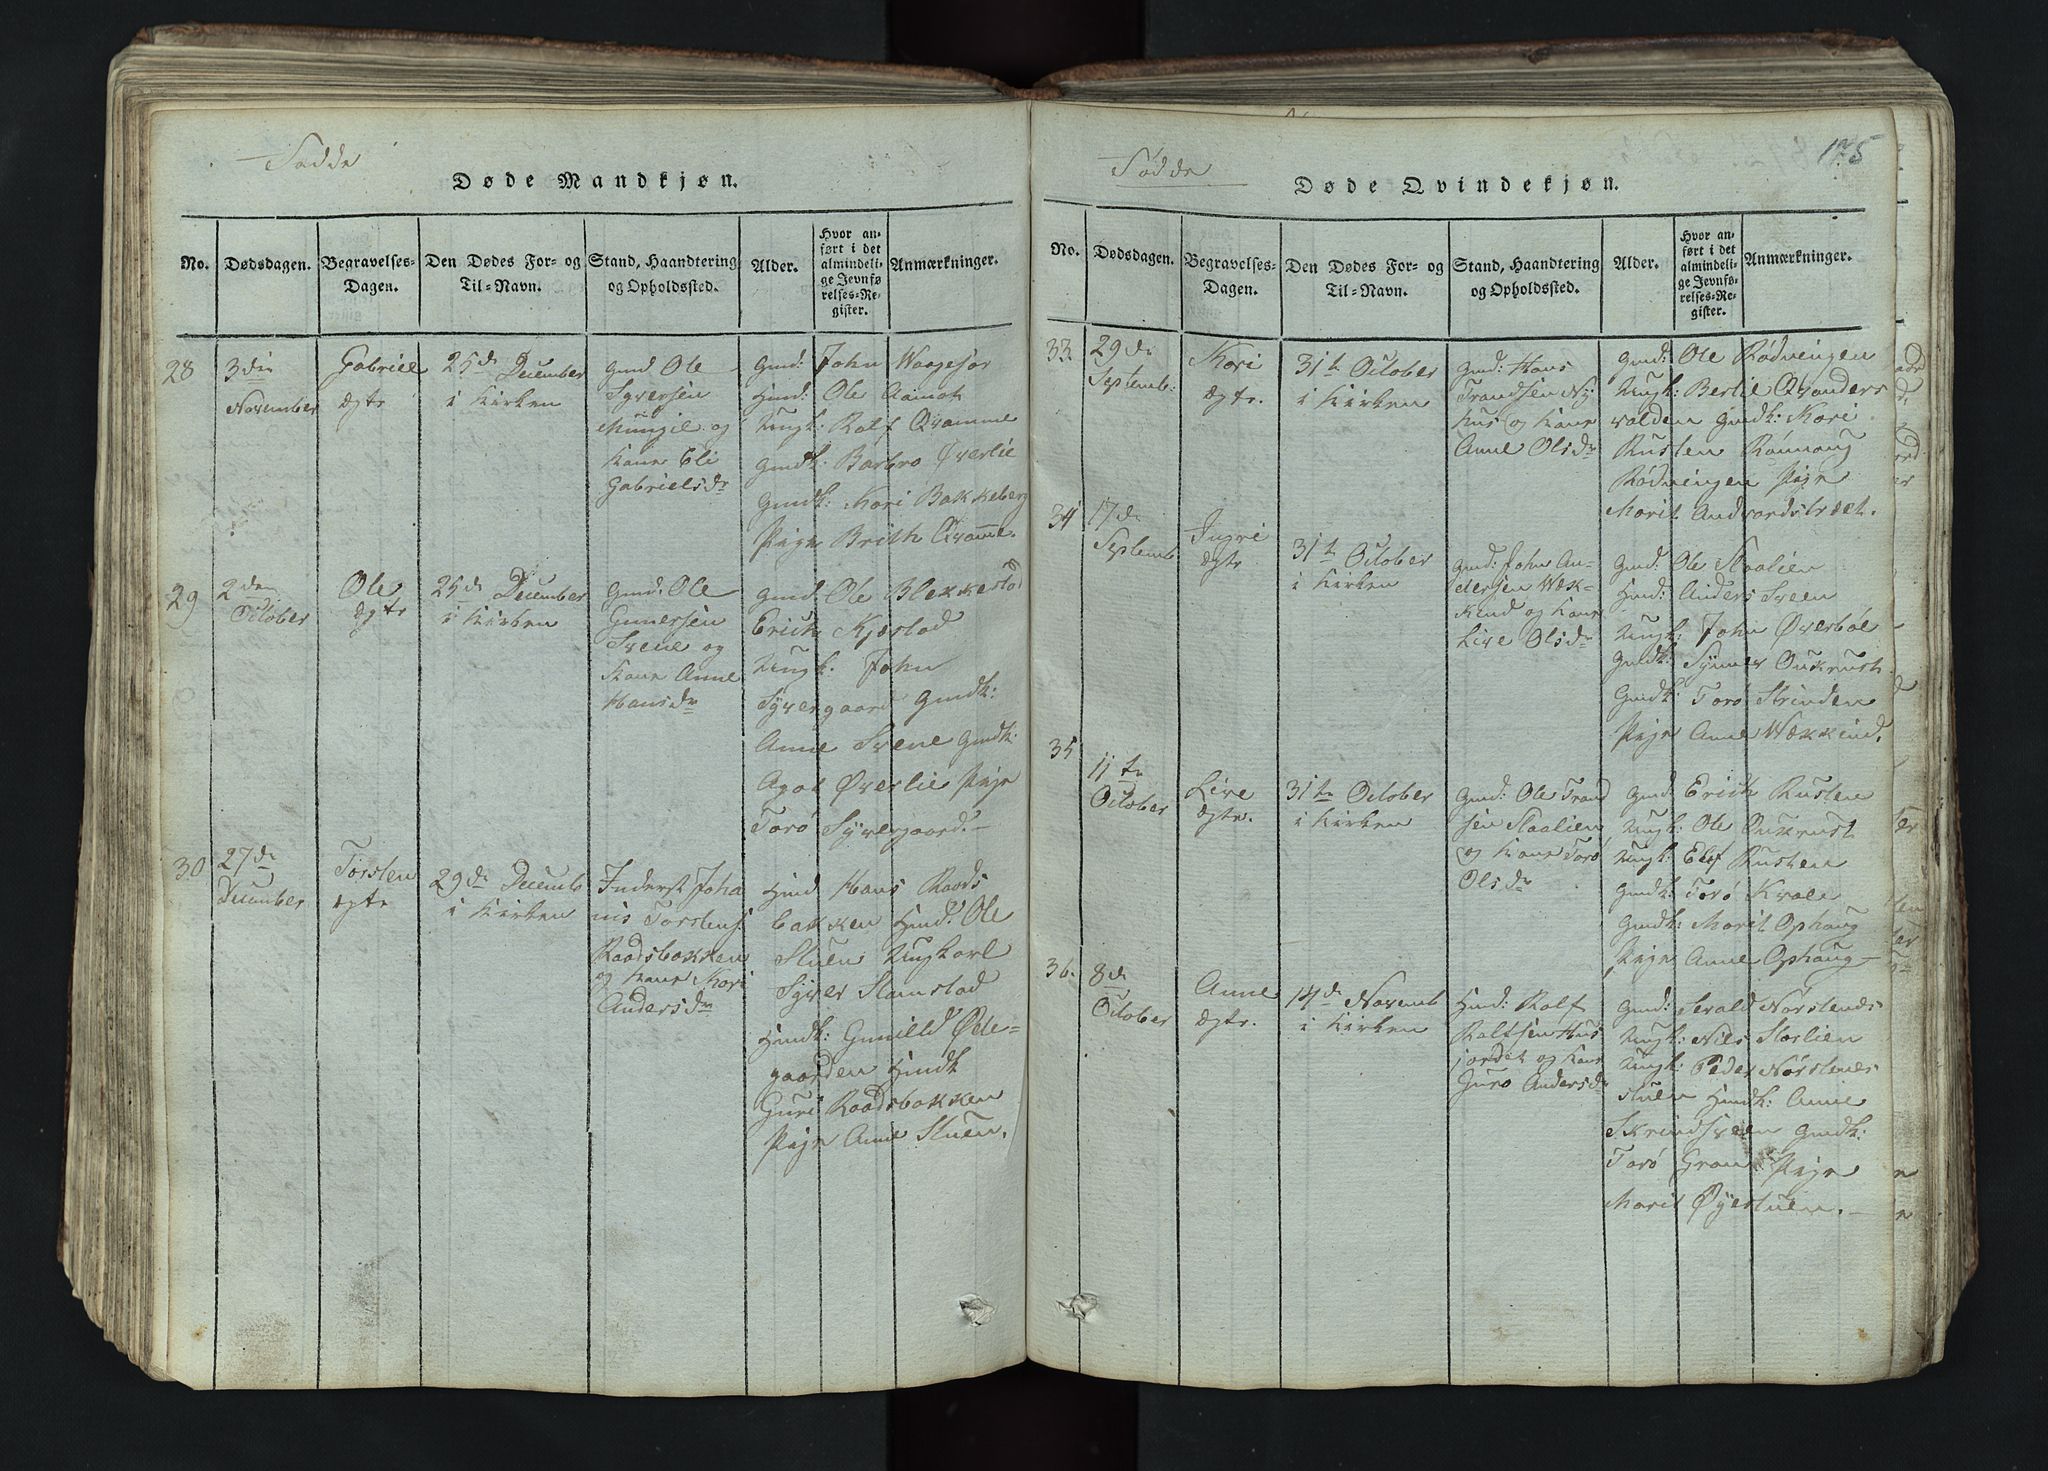 Fødde
Døde Mandkjøn.
No.
Dødsdagen.
Begravelses-
Dagen.
Den Dødes For- og
Til-Navn.
Stand, Haandtering
og Opholdssted.
Alder.
Hvor an-
ført i det
almindeli-
ge Jevnfø-
relses-Re-
gister.
Anmærkninger.
28
3die
November
Gabriel
ægte
25de December
i Kirken
Gmd Ole
Syversen
og
Kone Eli
Gabrielsdr
Gmd: John Waagesør
Hmd: Ole Aamot
Ungk: Rolf Qvamme
Gmdk: Barbro Øverlie
Gmdk: Kari Bakkeberg
Pige Brith Qvamme.
29
2den
October
Ole
ægte
25de December
i Kirken
Gmd: Ole
Gunersen
Svene og
Kone Anne
Hansdr
Gmd Ole Blekkestad
Erich Kjæstad
Ungk: John
Syvergaard Gmdk:
Anne Svene Gmdk:
Agot Øverlie Pige
Torø Syvergaard.
30
27de
December
Torsten
ægte
29de Decemb
i Kirken
Inderst Joha
nis Torstens:
Raadsbakken
og Kone Kari
Andersdr
Hmd Hans Raads
bakken Hmd: Ole
Stuen Ungkarl
Syver Slamstad
Hmdk: Gunild Øde-
gaarden Hmdk
Guri Raadsbakken
Pige Anne Stuen.
175
Fødde
Døde Qvindekjøn.
No.
Dødsdagen.
Begravelses-
Dagen.
Den Dødes For- og
Til-Navn.
Stand, Haandtering
og Opholdssted.
Alder.
Hvor an-
ført i det
almindeli-
ge Jevnfø-
relses-Re-
gister.
Anmærkninger.
33.
29de
Septemb:
Kari
ægte.
31te October
i Kirken
Gmd: Hans
Frandsen Ny
hus og Kone
Anne Olsdr
Gmd: Ole Rødningen
Ungk: Bertie Qvanders
volden Gmdk: Kari
Rusten Rønnoug
Rødningen Pige
Marit Andvordstræet.
34
17de
Septemb
Ingri
ægte
31te October
i Kirken
Gmd: John An-
dersen Wæk-
kend og Kone
Live Olsdr
Gmd: Ole Staalien
Hmd: Anders Sveen
Ungk: John Øverbøe
Gmdk: Synnev Oukrust
Gmdk Torø Strinden
Pige Anne Wækkind.
35
11te
October
Live
ægte.
31te October
i Kirken
Gmd: Ole Frand
sen Staalien
og Kone Torø
Olsdr
Gmd: Erich Rusten
Ungk: Ole Oukrust
Ungk: Elef Rusten
Gmdk: Torø Kvale
Gmdk: Marit Ophoug
Pige Anne Ophoug
36.
8de
October
Anne
ægte.
14de Novemb
i Kirken
Hmd: Rolf
Rolfsen Hus
jordet og Kone
Guro Andersdr
Gmd: Torald Nørstenes
Ungk: Niels Storlien
Ungk: Peder Nørstenes
stuen Hmdk: Anne
Skrindsveen Gmdk:
Torø Gran Pige
Marit Øyestuen.